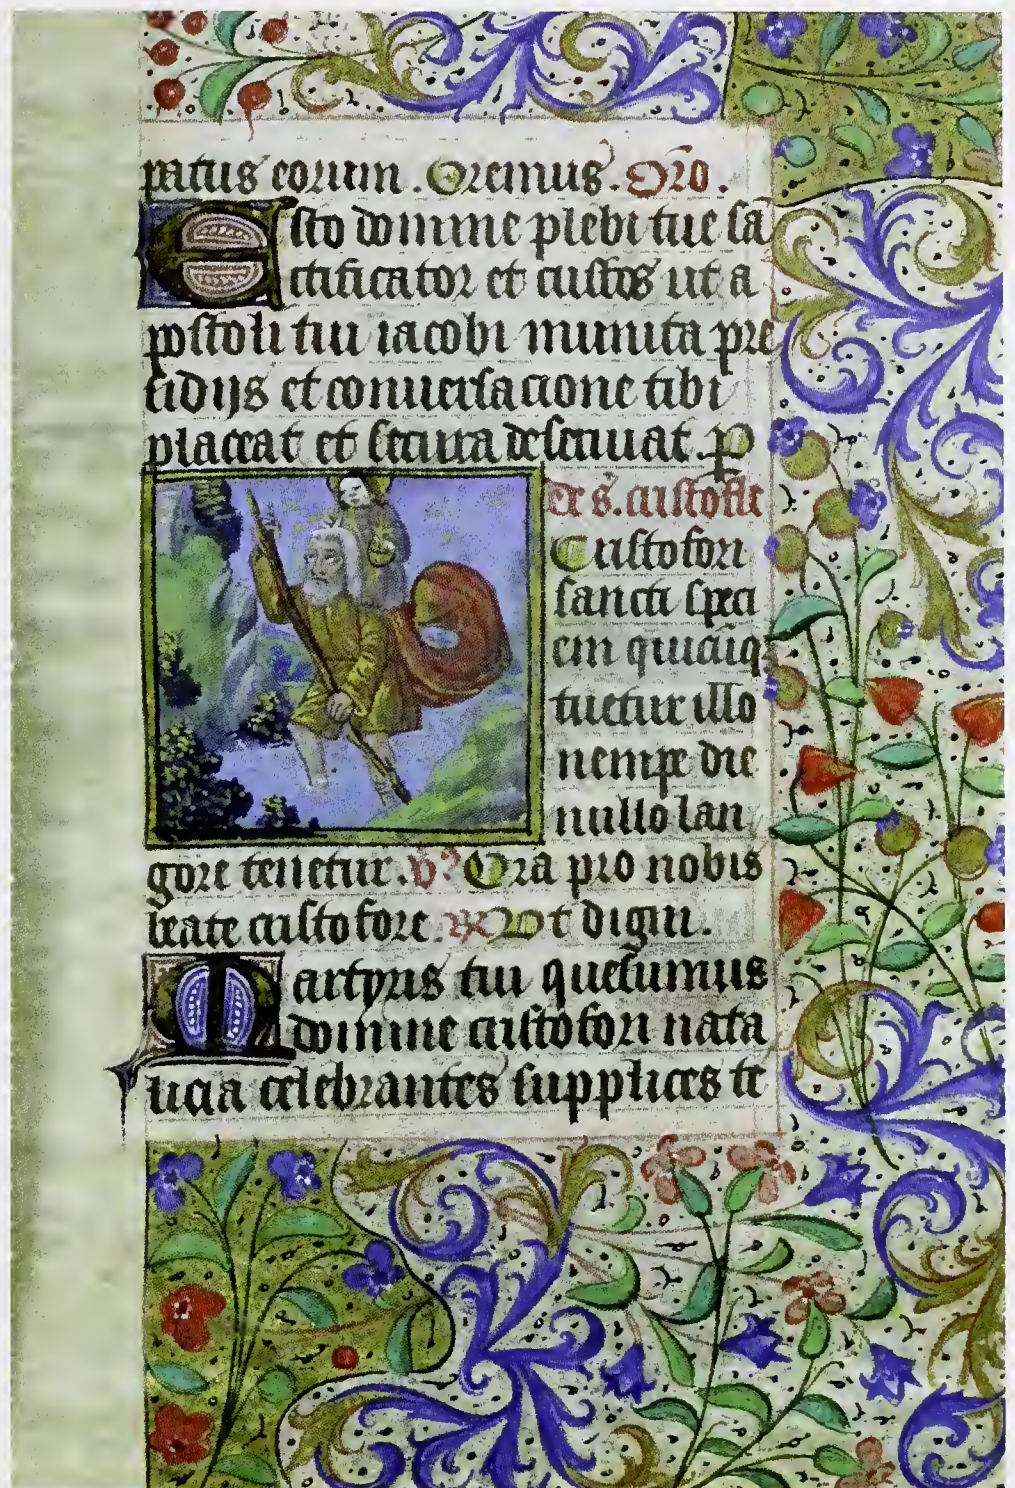 patus eorum. Oremus. Oro.
Esto domine plebi tue sā
ctificator et custos ut a
postoli tui iacobi munita pre
cidijs et conuersacione tibi
placeat et secura deseruiat. P
De s. cristofle
Cristofori
sancti speci
em quicūq3
tuetur illo
nempe die
nullo lan
gore tenetur. v Ora pro nobis
beate cristofore. R Vt digni.
Martyris tui quesumus
domine cristofori nata
licia celebrantes supplices te